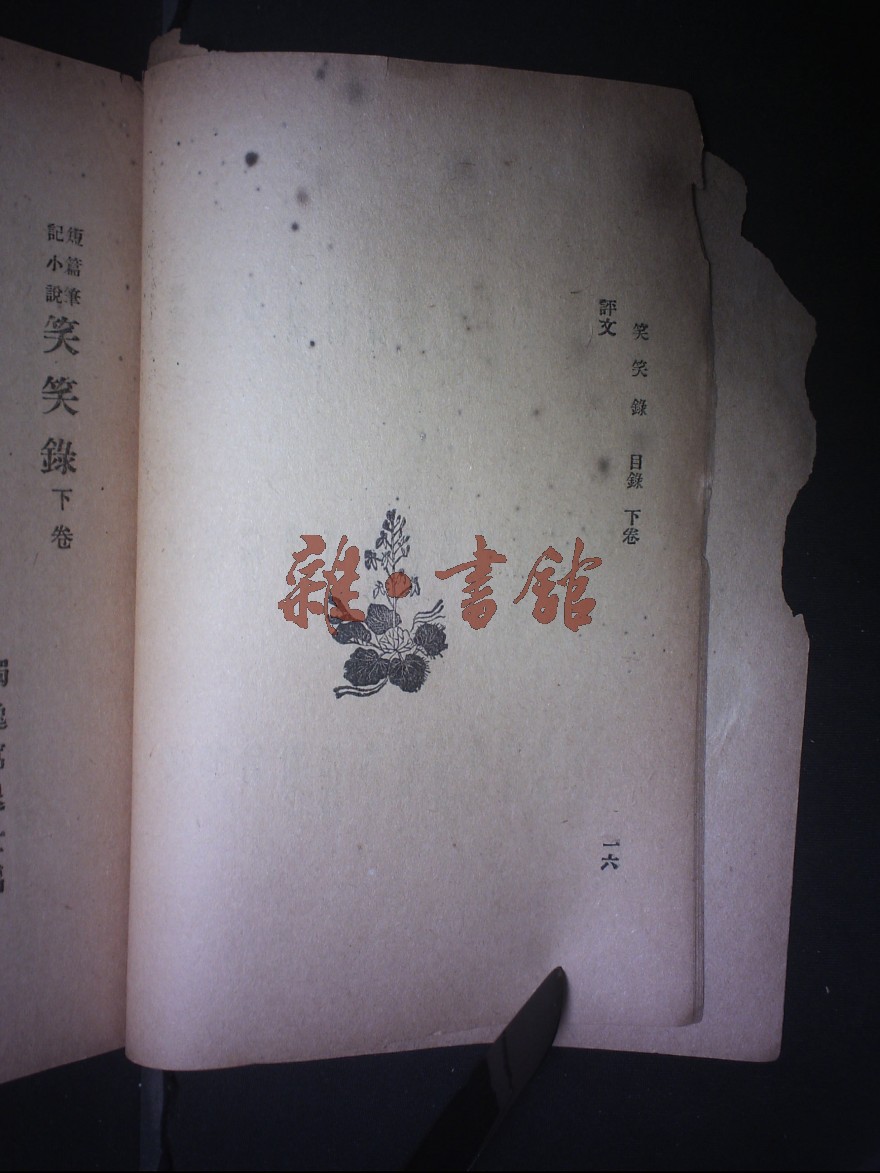 笑笑錄 目錄 下卷
評文
一六
雜·書館
短篇筆
記小說
笑笑錄下卷